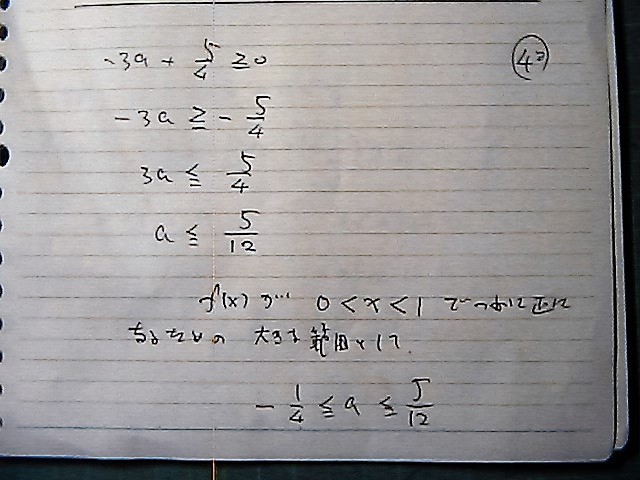 ④²
-3a + 5/4 ≧ 0
-3a ≧ - 5/4
3a ≦ 5/4
a ≦ 5/12
f(x) が 0 < x < 1 でつねに正に
なるための 大きな 範囲は
- 1/4 ≦ a ≦ 5/12